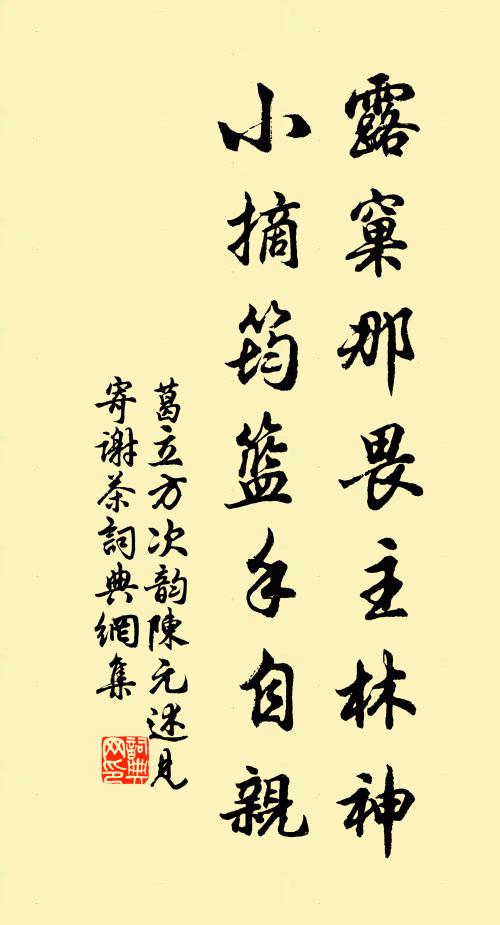 露窠那畏主林神
小摘筠籃手自親
葛立方次韵陳元述見
寄謝茶詞典網集
詞典網印